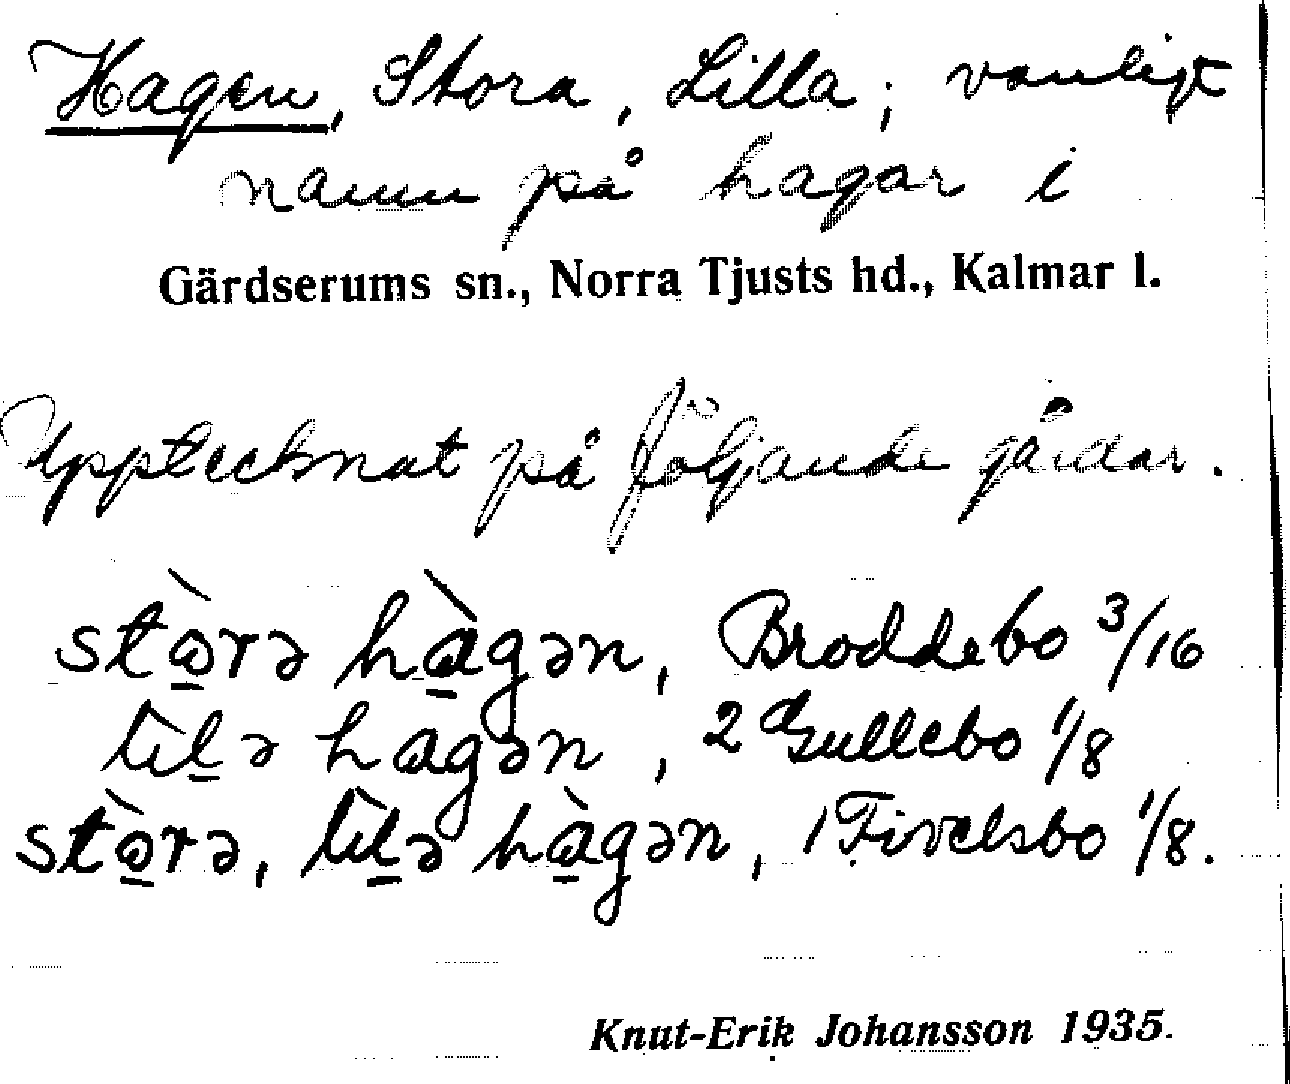 Hagen, Stora, Lilla; vanligt
namn på hagar i
Gärdserums sn., Norra Tjusts hd., Kalmar l.
Upptecknat på följande gårdar.
stòrə hàgən, Broddebo 3/16
lìlə hagən, 2 Gullebo 1/8
stòrə, lìlə hàgən, 1 Fivelsbo 1/8.
Knut-Erik Johansson 1935.